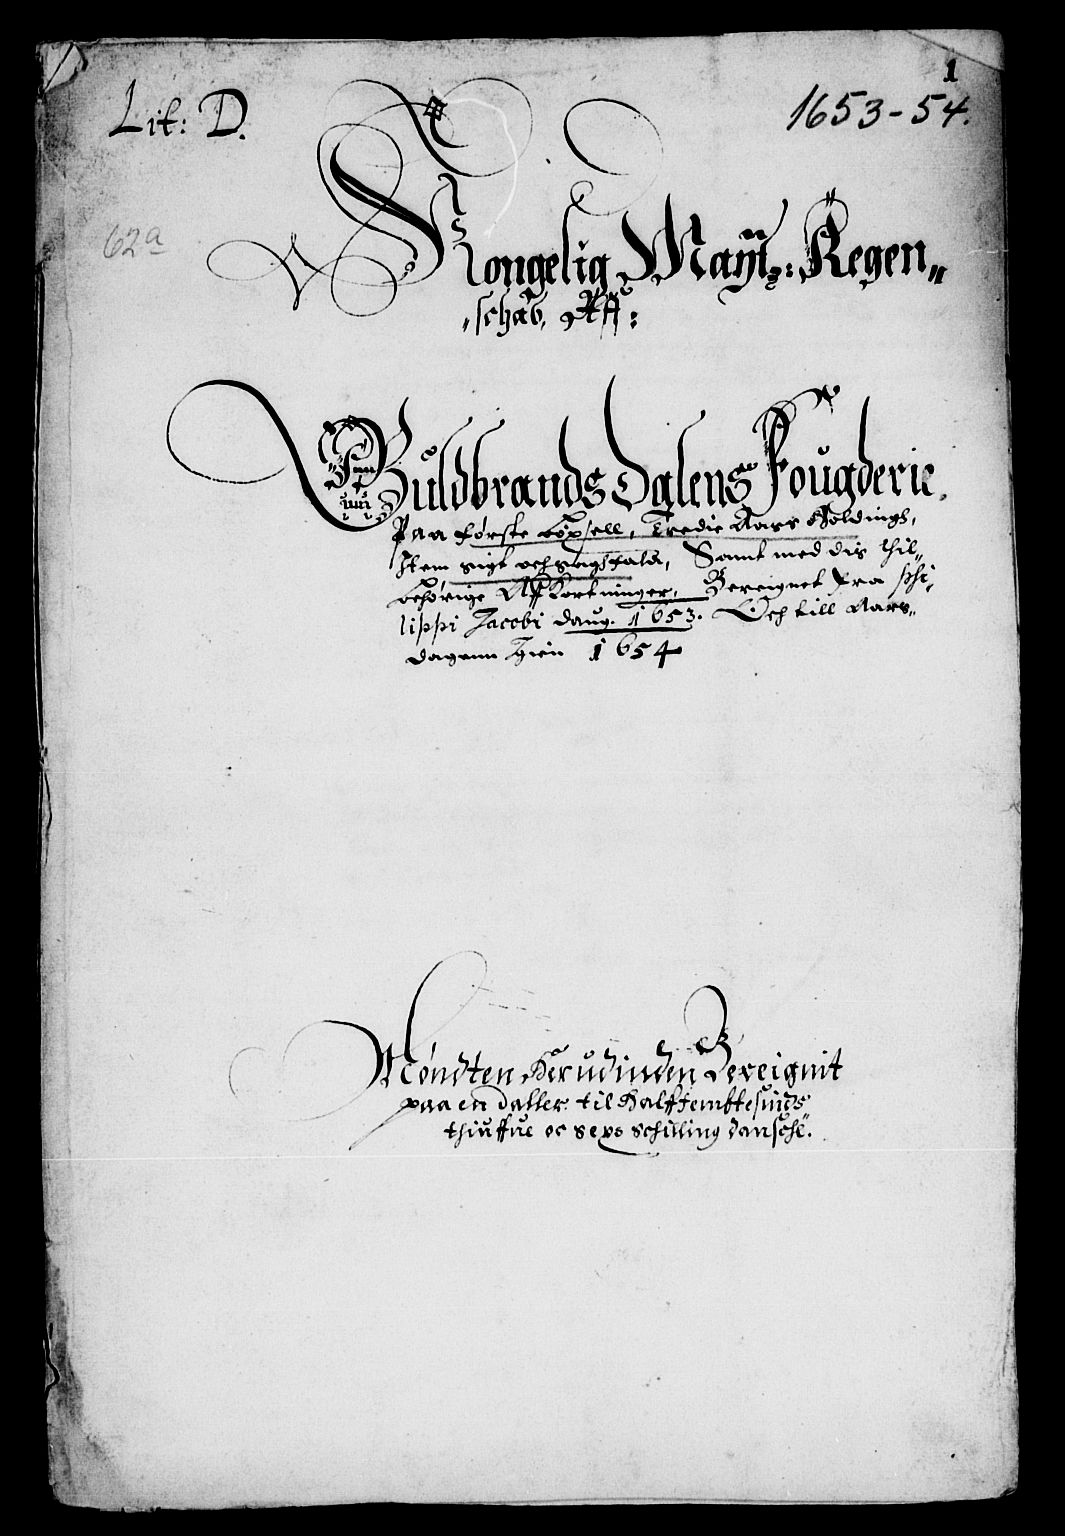 1
Lit: D.
1653-54.
62a
Kongelig Mayt: Regen„
„schab, Aff:
Guldbrands Dalens Fougderie.
Paa første böxsell, Tredie Aars Holdings,
Item sigt och sagefald, Sampt med dis thil„
behörige Affkortninger, Bereignet fra phi„
lippi Jacobi daug. 1653. Och till Aars„
dagenn Igien 1654
Møndten Herudinden Bereignit
paa en daller til Halffembtesinds
thiuffue oc sexs schilling dansche.